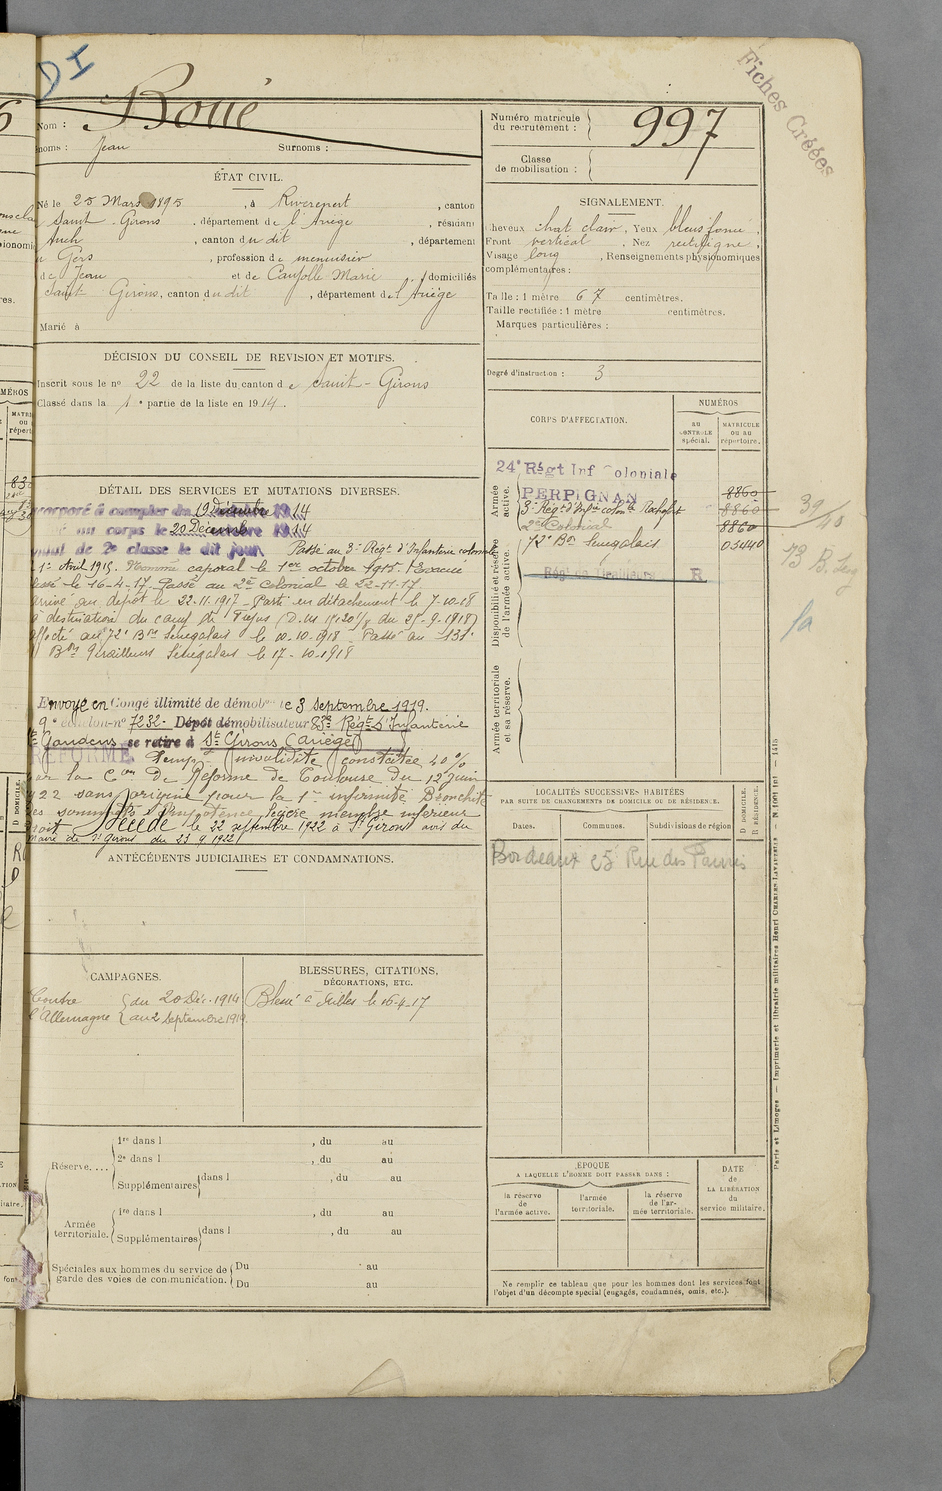 DI
Fiches Créées
Nom : Boué
noms : Jean Surnoms :
Numéro matricule du recrutement : 997
Classe de mobilisation :
ÉTAT CIVIL.
Né le 25 Mars 1895, à Riverenert, canton
Saint-Girons, département de l'Ariège, résidant
Auch, canton du dit, département
Gers, profession de menuisier
de Jean et de Caujolle Marie, domiciliés
Saint Girons, canton du dit, département de l'Ariège
Marié à
SIGNALEMENT.
cheveux chat clair, Yeux bleus foncé,
Front vertical. Nez rectiligne,
Visage long, Renseignements physionomiques
complémentaires :
Taille : 1 mètre 67 centimètres.
Taille rectifiée : 1 mètre centimètres.
Marques particulières :
Degré d'instruction : 3
DÉCISION DU CONSEIL DE REVISION ET MOTIFS.
Inscrit sous le nº 22 de la liste du canton de Saint-Girons
Classé dans la 1e partie de la liste en 1914.
DÉTAIL DES SERVICES ET MUTATIONS DIVERSES.
corporé à compter du 19 Décembre 1914
au corps le 20 Décembre 1914
soldat de 2e classe le dit jour Passé au 3e Régt d'Infanterie coloniale
1er Avril 1915. Nommé caporal le 1er octobre 1915. Evacué
blessé le 16-4-17. Passé au 2e Colonial le 22-11-17
arrivé au dépôt le 22-11-1917 - Parti en détachement le 7-10-18
à destination du camp de Fréjus (D.M. du 25-9-1918)
affecté au 72e Bon Sénégalais le 10-10-1918 - Passé au 131e
Bon Tirailleurs Sénégalais le 17-10-1918
Envoyé en Congé illimité de démob le 3 Septembre 1919.
9e échelon nº 7232. Dépôt démobilisateur 83e Régt d'Infanterie
St Gaudens se retire à St Girons (Ariège)
RÉFORMÉ Temp invalidité constatée 40%
par la Con de Réforme de Toulouse du 12 juin
1922 sans origine pour la 1re infirmité Bronchite
des sommets Impotence légère membre inférieur
droit Décédé le 22 septembre 1922 à St Girons avis du
maire de St Girons du 23 9 1922
CORPS D'AFFECTATION.
NUMÉROS
AU CONTROLE spécial.
MATRICULE ou au répertoire.
Armée active.
24e Régt Inf Coloniale
PERPIGNAN 8860
3e Régt d'Infie colonle Rochefort 8860
2e Colonial 8860
72e Bon Sénégalais 05440
Régt de Tirailleurs R
73 B. Seg
Disponibilité et réserve de l'armée active.
Armée territoriale et sa réserve.
LOCALITÉS SUCCESSIVES HABITÉES
PAR SUITE DE CHANGEMENTS DE DOMICILE OU DE RÉSIDENCE.
Dates. Communes. Subdivisions de région D DOMICILE. R RÉSIDENCE.
Bordeaux 25 Rue des Faures
ANTÉCÉDENTS JUDICIAIRES ET CONDAMNATIONS.
CAMPAGNES.
Contre l'Allemagne du 20 Déc. 1914 au 2 Septembre 1919.
BLESSURES, CITATIONS, DÉCORATIONS, ETC.
Blessé à le 16-4-17
Réserve....
1re dans l , du au
2e dans l , du au
Supplémentaires dans l , du au
Armée territoriale.
1re dans l , du au
Supplémentaires dans l , du au
Spéciales aux hommes du service de garde des voies de communication.
Du au
Du au
ÉPOQUE
A LAQUELLE L'HOMME DOIT PASSER DANS :
la réserve de l'armée active.
l'armée territoriale.
la réserve de l'armée territoriale.
DATE de LA LIBÉRATION du service militaire.
Ne remplir ce tableau que pour les hommes dont les services font
l'objet d'un décompte spécial (engagés, condamnés, omis, etc.).
Paris et Limoges — Imprimerie et librairie militaires Henri CHARLES-LAVAUZELLE